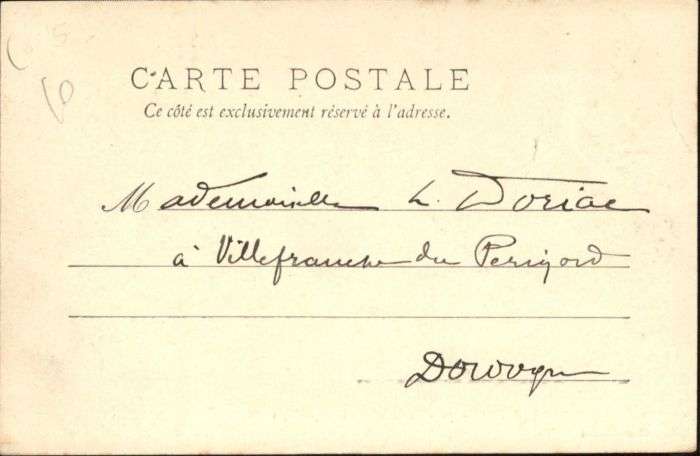 CARTE POSTALE
Ce côté est exclusivement réservé à l'adresse.
Mademoiselle L. Doriac
à Villefranche du Perigord
Dordogne